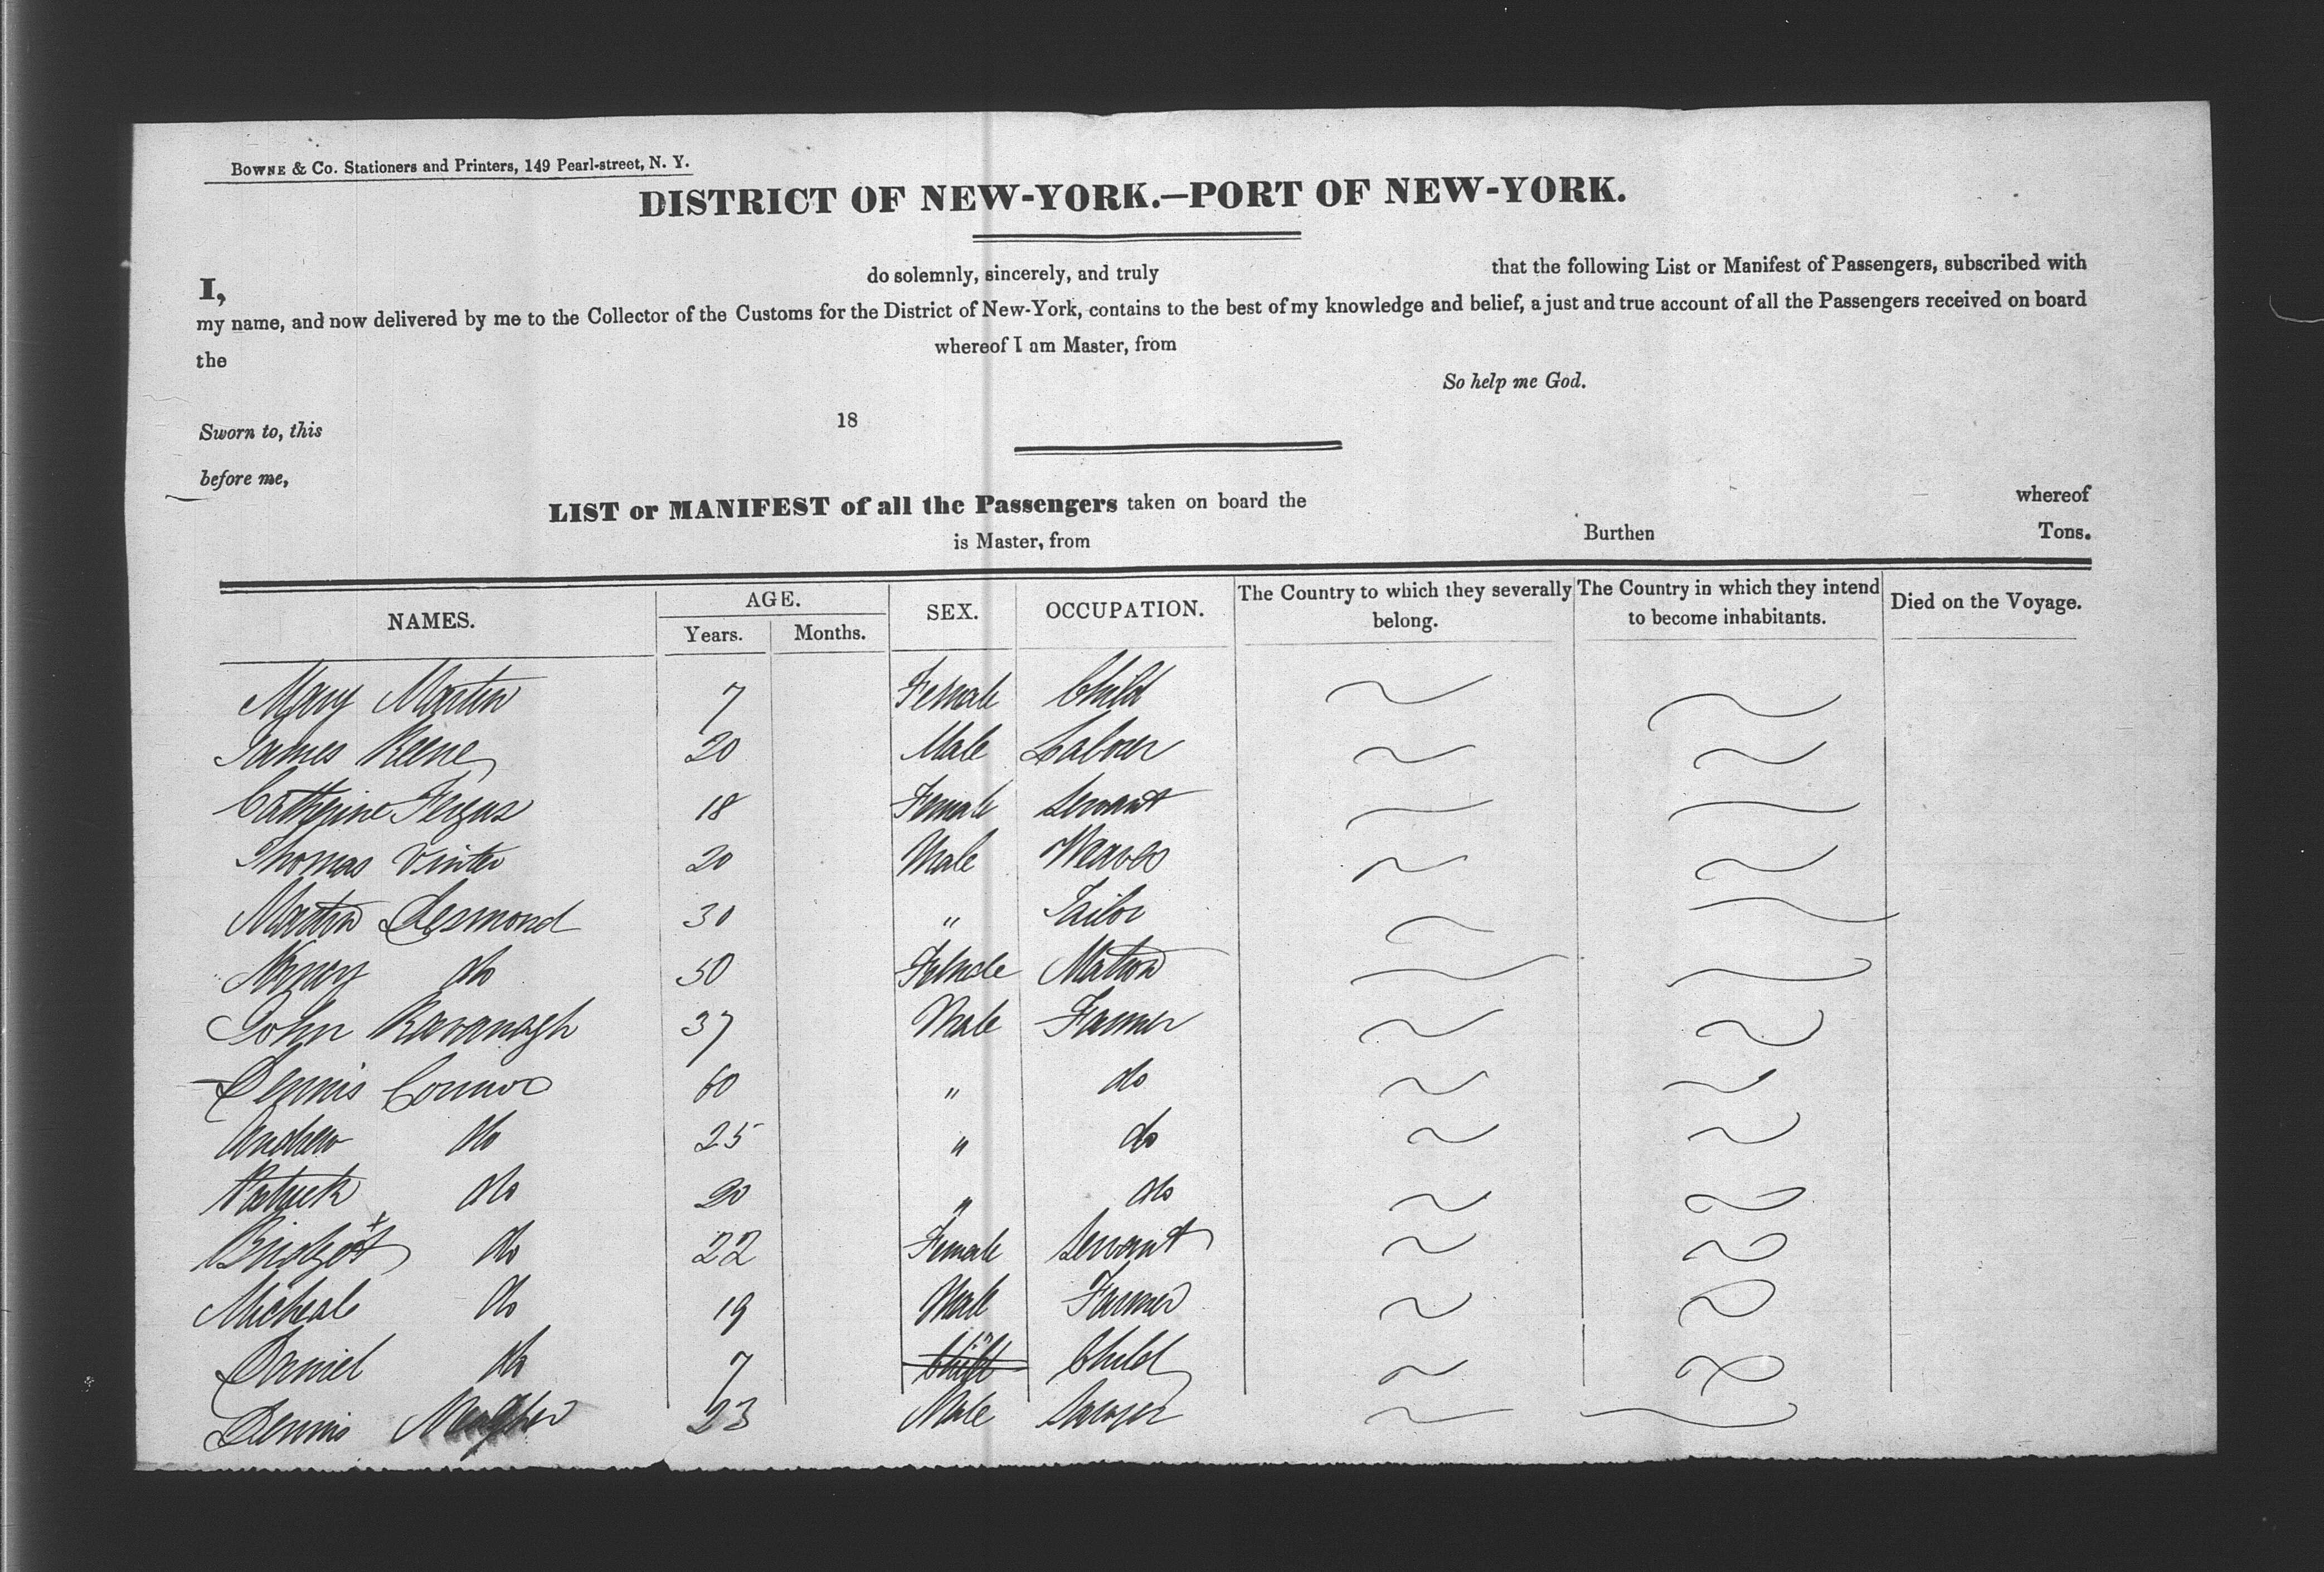 BOWNE & Co. Stationers and Printers, 149 Pearl-street, N. Y.
DISTRICT OF NEW-YORK.—PORT OF NEW-YORK.
I, do solemnly, sincerely, and truly that the following List or Manifest of Passengers, subscribed with
my name, and now delivered by me to the Collector of the Customs for the District of New-York, contains to the best of my knowledge and belief, a just and true account of all the Passengers received on board
the whereof I am Master, from
So help me God.
Sworn to, this 18
before me,
LIST or MANIFEST of all the Passengers taken on board the whereof
is Master, from Burthen Tons.
NAMES. AGE. SEX. OCCUPATION. The Country to which they severally belong. The Country in which they intend to become inhabitants. Died on the Voyage.
Years. Months.
Mary Martin 7 Female Child
James Keene 20 Male Labner
Catherine Fergus 18 Female Servant
Thomas Vinter 20 Male Weaver
Martin Desmond 30 " Tailor
Nancy do 50 Female Matron
John Kavanagh 37 Male Farmer
Dennis Connor 60 " do
Andrew do 25 " do
Patrick do 20 " do
Bridget do 22 Female Servant
Micheal do 19 Male Farmer
Daniel do 7 " Child
Dennis Meagher 23 Male Sawyer